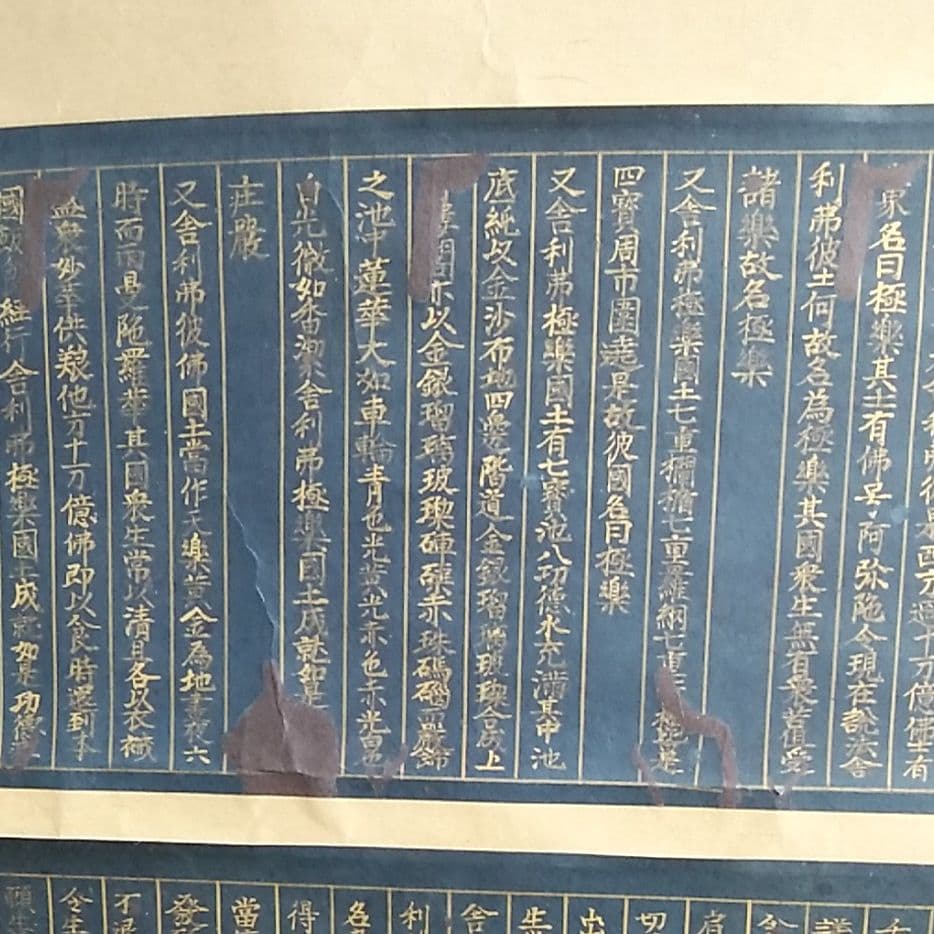 從是西方過十万億佛土有
界名曰極樂其土有佛号阿弥陁今現在說法舍
利弗彼土何故名為極樂其國衆生無有衆苦但受
諸樂故名極樂
又舍利弗極樂國土七重欄楯七重羅網七重是
四寶周帀圍遶是故彼國名曰極樂
又舍利弗極樂國土有七寶池八功德水充滿其中池
底純以金沙布地四邊階道金銀瑠璃玻瓈合成上
亦以金銀瑠璃玻瓈硨磲赤珠碼碯嚴飾
之池中蓮華大如車輪青色光黃光赤色赤光白色
白光微如香潔舍利弗極樂國土成就如是
庄嚴
又舍利弗彼佛國土當作天樂黃金為地晝夜六
時而雨曼陁羅華其國衆生常以清旦各以衣裓
盛衆妙華供養他方十万億佛即以食時還到本
國飯食經行舍利弗極樂國土成就如是功德
舍
利
名
得
當
發
不退
今生
願生